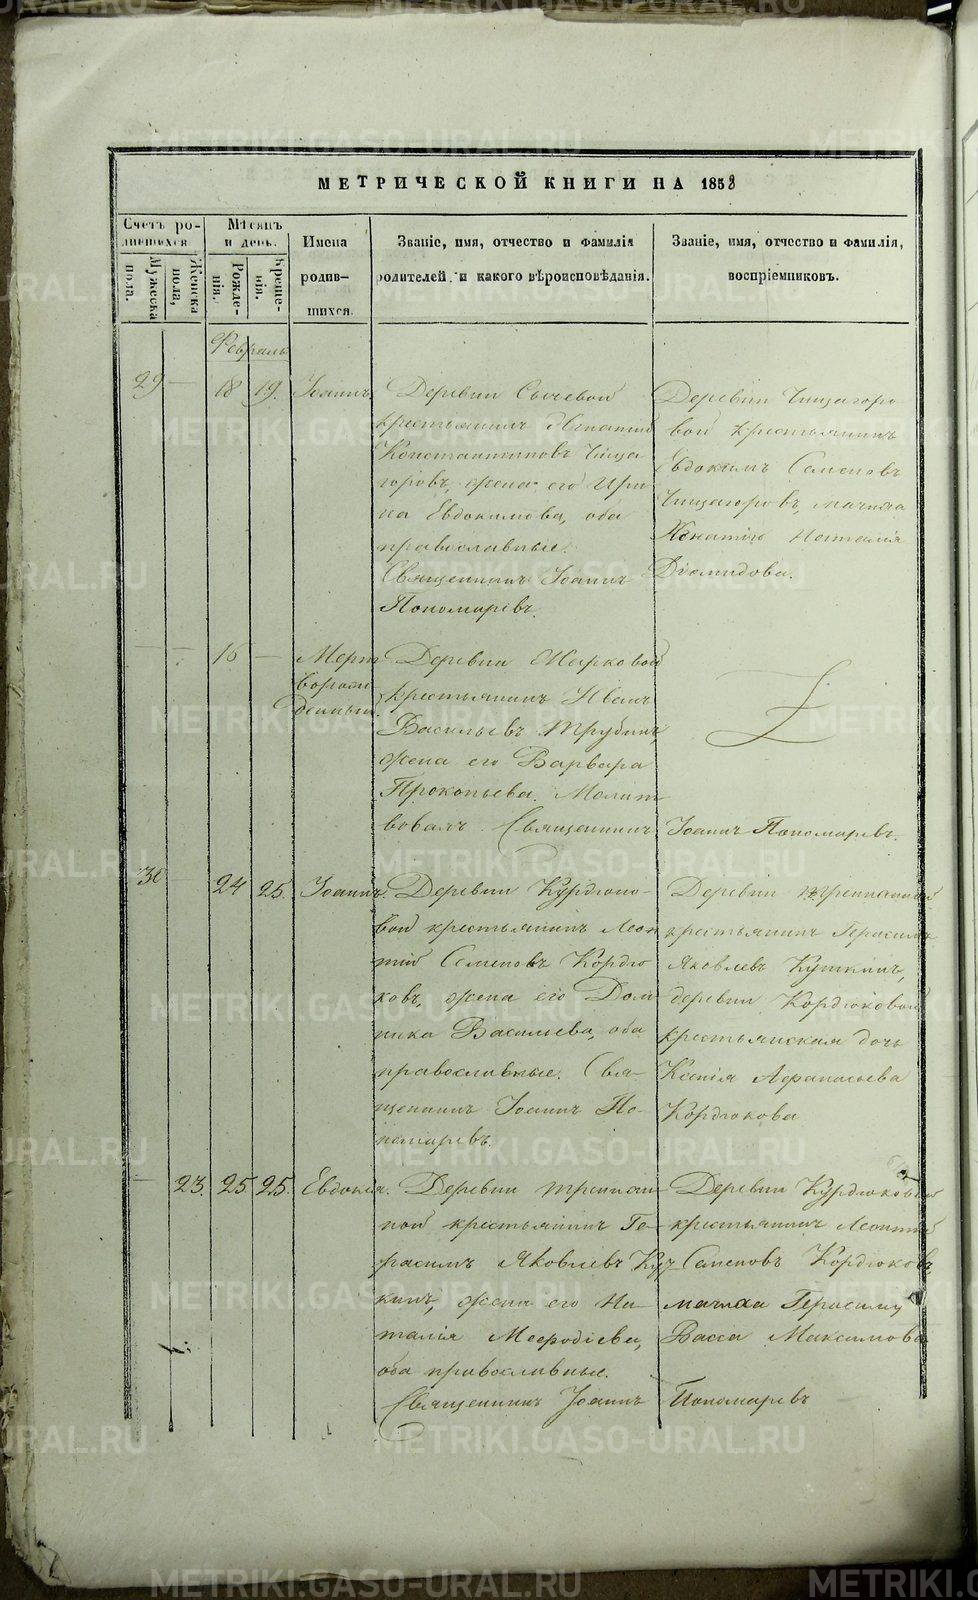 МЕТРИЧЕСКОЙ КНИГИ НА 1858
Счетъ ро-
дившихся
Мѣсяцъ
и день.
Имена
родив-
шихся.
Званіе, имя, отчество и фамилія
родителей, и какого вѣроисповѣданія.
Званіе, имя, отчество и фамилія,
воспріемниковъ.
Мужеска
пола.
Женска
пола,
Рожде-
нія.
Креще-
нія.
Февраль
29 — 18 19. Іоаннъ.
Деревни Сычевой
крестьянинъ Игнатій
Константиновъ Чища
горовъ, жена его Ири
на Евдокимова, оба
православные.
Священникъ Іоаннъ
Пономаревъ.
Деревни Чищагоро
вой крестьянинъ
Евдокимъ Семеновъ
Чищагоровъ, мачиха
Игнатію Наталія
Діомидова.
— — 16 — Мерт
ворож
денный
Деревни Марковой
крестьянинъ Иванъ
Васильевъ Трубинъ,
жена его Варвара
Прокопьева. Молит
вовалъ Священникъ Іоаннъ Пономаревъ.
30 24 25. Іоаннъ.
Деревни Курдюко-
вой крестьянинъ Леон
тій Семеновъ Кордю
ковъ, жена его Дом
ника Васильева, оба
православные. Свя-
щенникъ Іоаннъ По-
номаревъ.
Деревни
крестьянинъ Герасимъ
Яковлевъ Куткинъ,
деревни Кордюковой
крестьянская дочь
Ксенія Афанасьева
Кордюкова
— 23. 25 25. Евдокія.
Деревни
ной крестьянинъ Ге-
расимъ Яковлевъ Кут
кинъ, жена его На-
талія Мефодіева,
оба православные.
Священникъ Іоаннъ Пономаревъ
Деревни Курдюковой
крестьянинъ Леонтій
Семеновъ Кордюковъ
мачиха Герасиму
Васса Максимова
METRIKI.GASO-URAL.RU